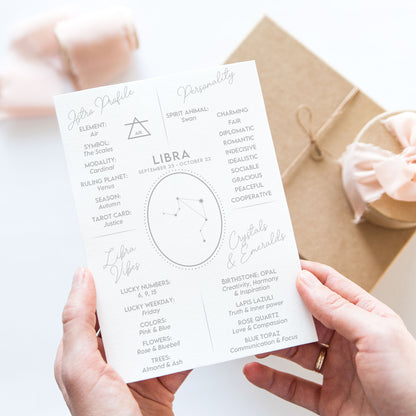 Astro Profile
ELEMENT:
Air
SYMBOL:
The Scales
MODALITY:
Cardinal
RULING PLANET:
Venus
SEASON:
Autumn
TAROT CARD:
Justice
AIR
Personality
SPIRIT ANIMAL:
Swan
CHARMING
FAIR
DIPLOMATIC
ROMANTIC
INDECISIVE
IDEALISTIC
SOCIABLE
GRACIOUS
PEACEFUL
COOPERATIVE
LIBRA
SEPTEMBER 23 - OCTOBER 22
Libra
Vibes
LUCKY NUMBERS:
6, 9, 15
LUCKY WEEKDAY:
Friday
COLORS:
Pink & Blue
FLOWERS:
Rose & Bluebell
TREES:
Almond & Ash
Crystals
& Emeralds
BIRTHSTONE: OPAL
Creativity, Harmony
& Inspiration
LAPIS LAZULI
Truth & Inner Power
ROSE QUARTZ
Love & Compassion
BLUE TOPAZ
Communication & Focus